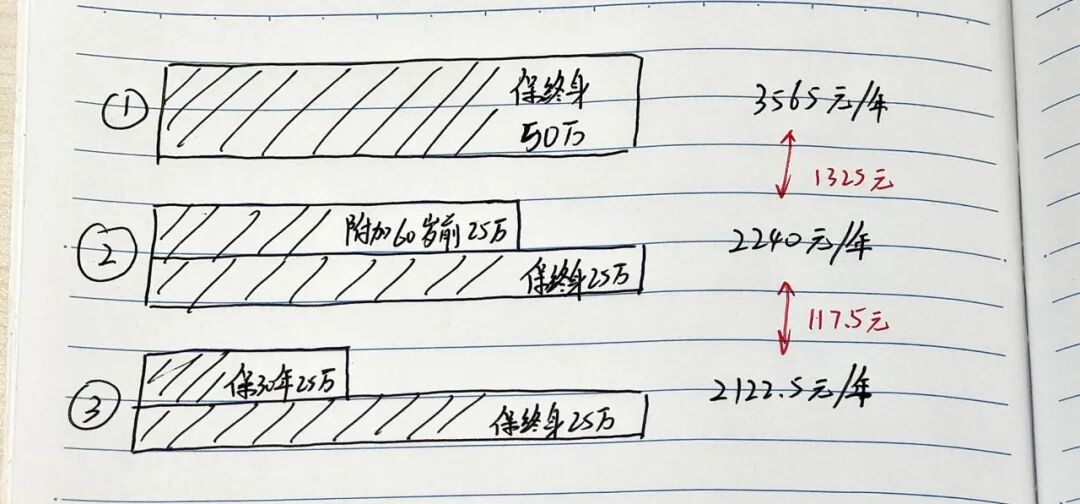 ① 保终身 3565元/年
50万
1325元
② 附加60岁前25万 2240元/年
保终身25万
117.5元
③ 保30年25万 2122.5元/年
保终身25万